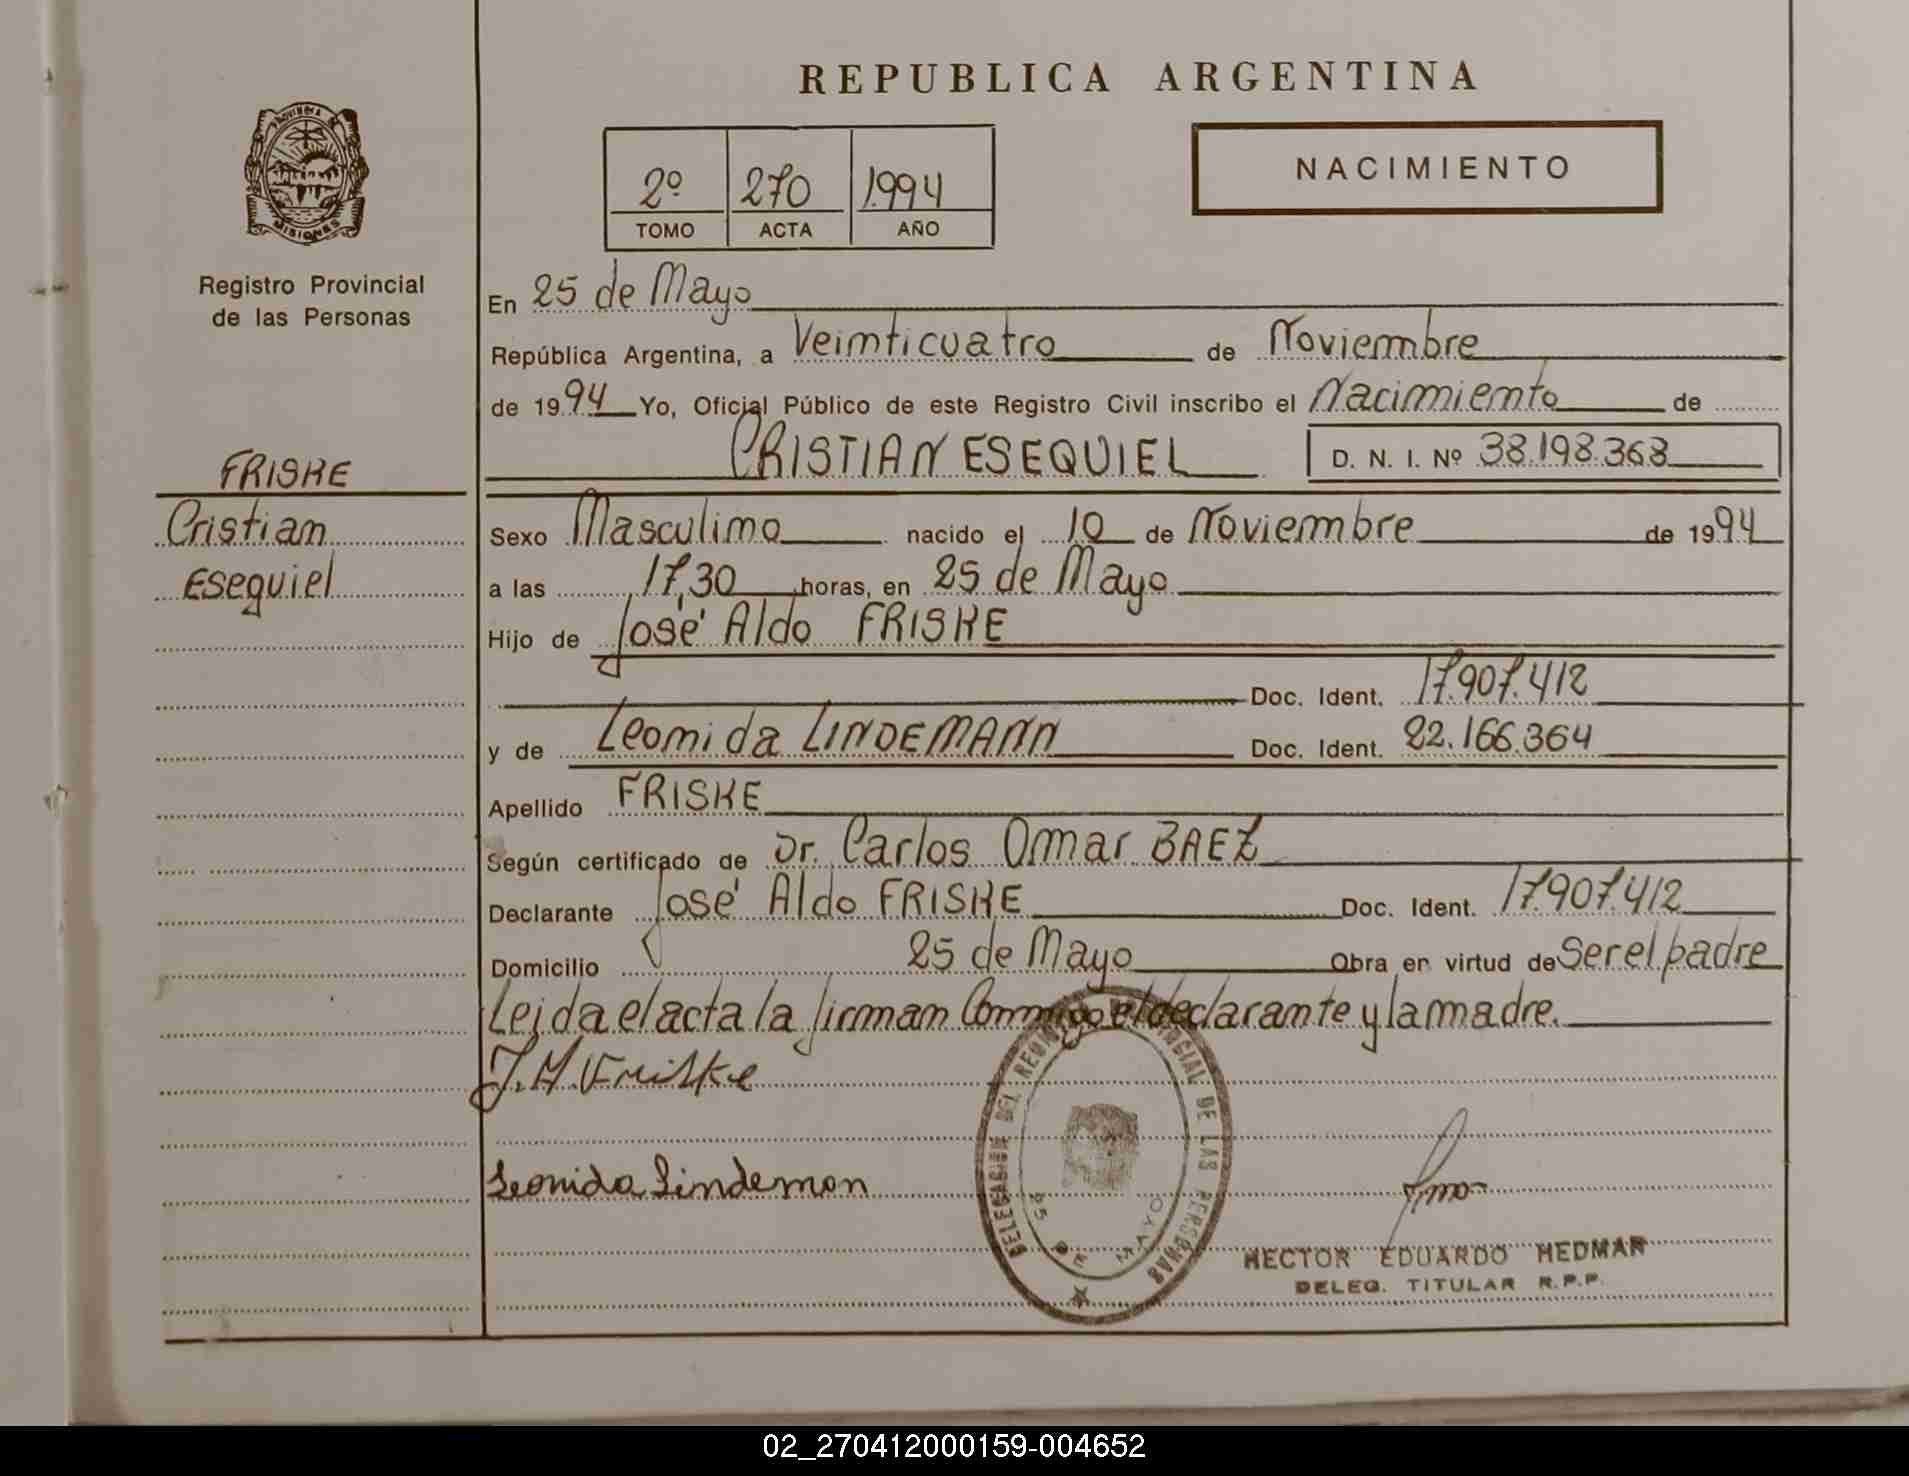 REPUBLICA ARGENTINA
PROVINCIA DE
MISIONES
Registro Provincial
de las Personas
2º 270 1994
TOMO ACTA AÑO
NACIMIENTO
En 25 de Mayo
República Argentina, a Veinticuatro de Noviembre
de 1994 Yo, Oficial Público de este Registro Civil inscribo el Nacimiento de
CRISTIAN ESEQUIEL D. N. I. Nº 38.198.368
FRISKE
Cristian
Esequiel
Sexo Masculino nacido el 10 de Noviembre de 1994
a las 17,30 horas, en 25 de Mayo
Hijo de José Aldo FRISKE
Doc. Ident. 17.907.412
y de Leonida LINDEMANN Doc. Ident. 22.166.364
Apellido FRISKE
Según certificado de Dr. Carlos Omar BAEZ
Declarante José Aldo FRISKE Doc. Ident. 17.907.412
Domicilio 25 de Mayo Obra en virtud de Ser el padre
Leida el acta la firman Conmigo el declarante y la madre.
J.A. Friske
Leonida Lindemon
DELEGACION DEL REGISTRO PROVINCIAL DE LAS PERSONAS
25 DE MAYO
HECTOR EDUARDO HEDMAN
DELEG. TITULAR R.P.P.
02_270412000159-004652